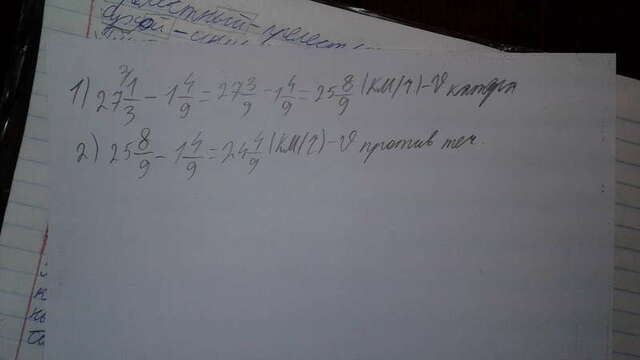 1) 27 1/3 - 1 4/9 = 27 3/9 - 1 4/9 = 25 8/9 (км/ч) - v катера
2) 25 8/9 - 1 4/9 = 24 4/9 (км/ч) - v против теч.